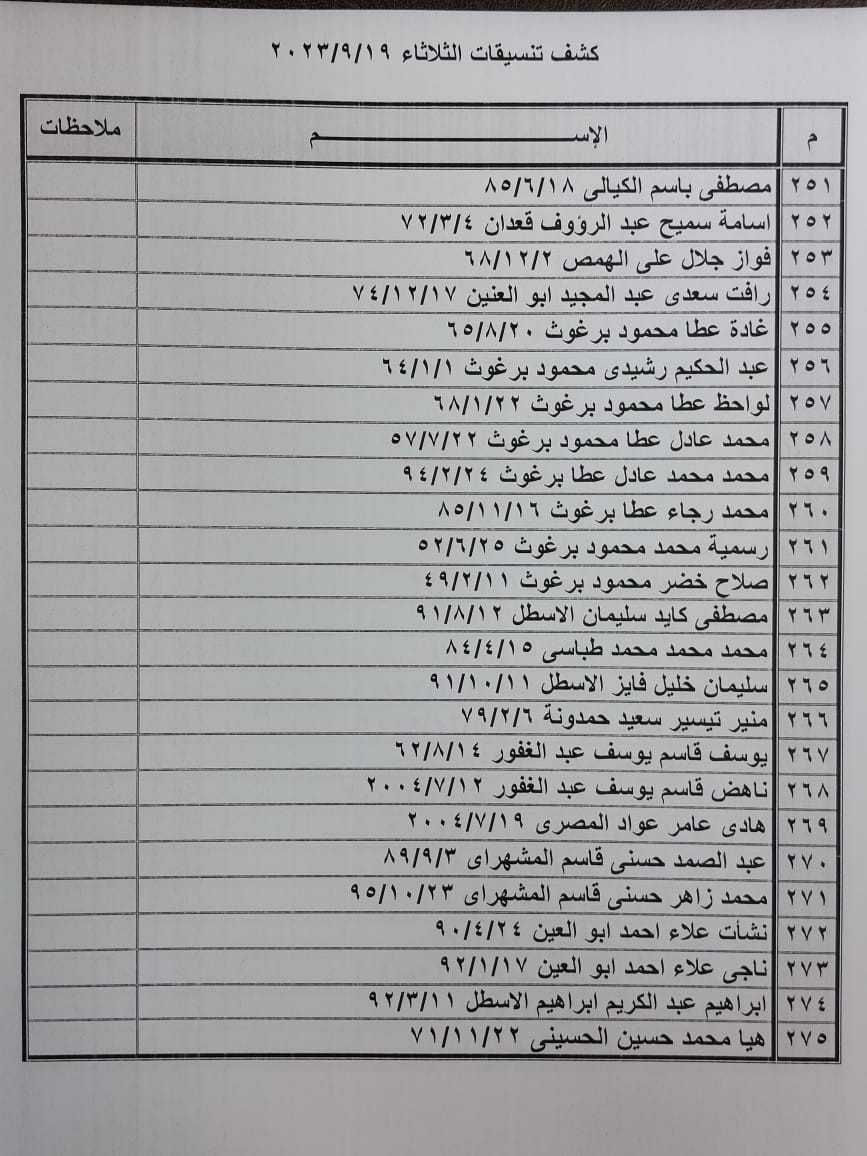 كشف تنسيقات الثلاثاء ٢٠٢٣/٩/١٩
م الإســـــــــــــم ملاحظات
٢٥١ مصطفى باسم الكيالى ٨٥/٦/١٨
٢٥٢ اسامة سميح عبد الرؤوف قعدان ٧٢/٣/٤
٢٥٣ فواز جلال على الهمص ٦٨/١٢/٢
٢٥٤ رافت سعدى عبد المجيد ابو العنين ٧٤/١٢/١٧
٢٥٥ غادة عطا محمود برغوث ٦٥/٨/٢٠
٢٥٦ عبد الحكيم رشيدى محمود برغوث ٦٤/١/١
٢٥٧ لواحظ عطا محمود برغوث ٦٨/١/٢٢
٢٥٨ محمد عادل عطا محمود برغوث ٥٧/٧/٢٢
٢٥٩ محمد محمد عادل عطا برغوث ٩٤/٢/٢٤
٢٦٠ محمد رجاء عطا برغوث ٨٥/١١/١٦
٢٦١ رسمية محمد محمود برغوث ٥٢/٦/٢٥
٢٦٢ صلاح خضر محمود برغوث ٤٩/٢/١١
٢٦٣ مصطفى كايد سليمان الاسطل ٩١/٨/١٢
٢٦٤ محمد محمد محمد طباسى ٨٤/٤/١٥
٢٦٥ سليمان خليل فايز الاسطل ٩١/١٠/١١
٢٦٦ منير تيسير سعيد حمدونة ٧٩/٢/٦
٢٦٧ يوسف قاسم يوسف عبد الغفور ٦٢/٨/١٤
٢٦٨ ناهض قاسم يوسف عبد الغفور ٢٠٠٤/٧/١٢
٢٦٩ هادى عامر عواد المصرى ٢٠٠٤/٧/١٩
٢٧٠ عبد الصمد حسنى قاسم المشهراى ٨٩/٩/٣
٢٧١ محمد زاهر حسنى قاسم المشهراى ٩٥/١٠/٢٣
٢٧٢ نشأت علاء احمد ابو العين ٩٠/٤/٢٤
٢٧٣ ناجى علاء احمد ابو العين ٩٢/١/١٧
٢٧٤ ابراهيم عبد الكريم ابراهيم الاسطل ٩٢/٣/١١
٢٧٥ هيا محمد حسين الحسينى ٧١/١١/٢٢